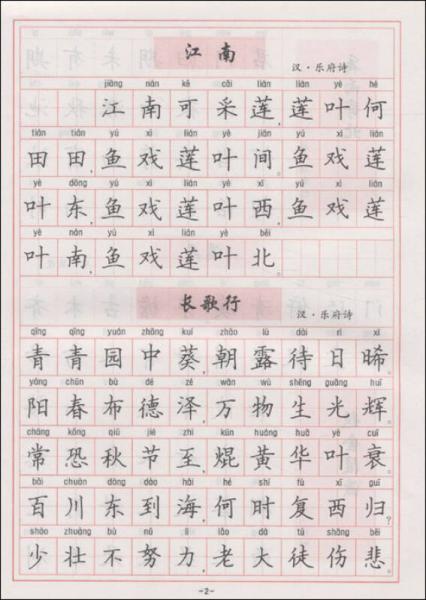 江南
汉·乐府诗
jiāng nán kě cǎi lián lián yè hé
江南可采莲,莲叶何
tián tián yú xì lián yè jiān yú xì lián
田田,鱼戏莲叶间。鱼戏莲
yè dōng yú xì lián yè xī yú xì lián
叶东,鱼戏莲叶西,鱼戏莲
yè nán yú xì lián yè běi
叶南,鱼戏莲叶北。
长歌行
汉·乐府诗
qīng qīng yuán zhōng kuí zhāo lù dài rì xī
青青园中葵,朝露待日晞。
yáng chūn bù dé zé wàn wù shēng guāng huī
阳春布德泽,万物生光辉。
cháng kǒng qiū jié zhì kūn huáng huā yè cuī
常恐秋节至,焜黄华叶衰。
bǎi chuān dōng dào hǎi hé shí fù xī guī
百川东到海,何时复西归?
shào zhuàng bù nǔ lì lǎo dà tú shāng bēi
少壮不努力,老大徒伤悲。
-2-